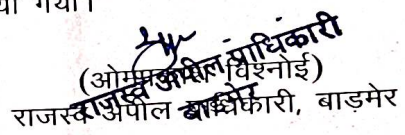 या गया।
राजस्व अपील प्राधिकारी
बाड़मेर
(ओमप्रकाश विश्नोई)
राजस्व अपील प्राधिकारी, बाड़मेर